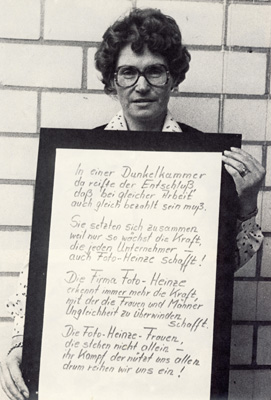 In einer Dunkelkammer
da reifte der Entschluß,
daß bei gleicher Arbeit
auch gleich bezahlt sein muß.
Sie setzten sich zusammen
weil nur so wächst die Kraft,
die jeden Unternehmer –
auch Foto-Heinze schafft!
Die Firma Foto-Heinze
erkennt immer mehr die Kraft,
mit der die Frauen und Männer
Ungleichheit zu überwinden
schafft.
Die Foto-Heinze-Frauen,
die stehen nicht allein –
ihr Kampf der nützt uns allen
drum reihen wir uns ein!